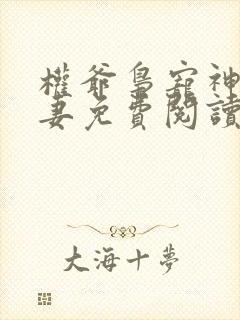 權爺梟寵神
妻免費閱讀
大海十夢